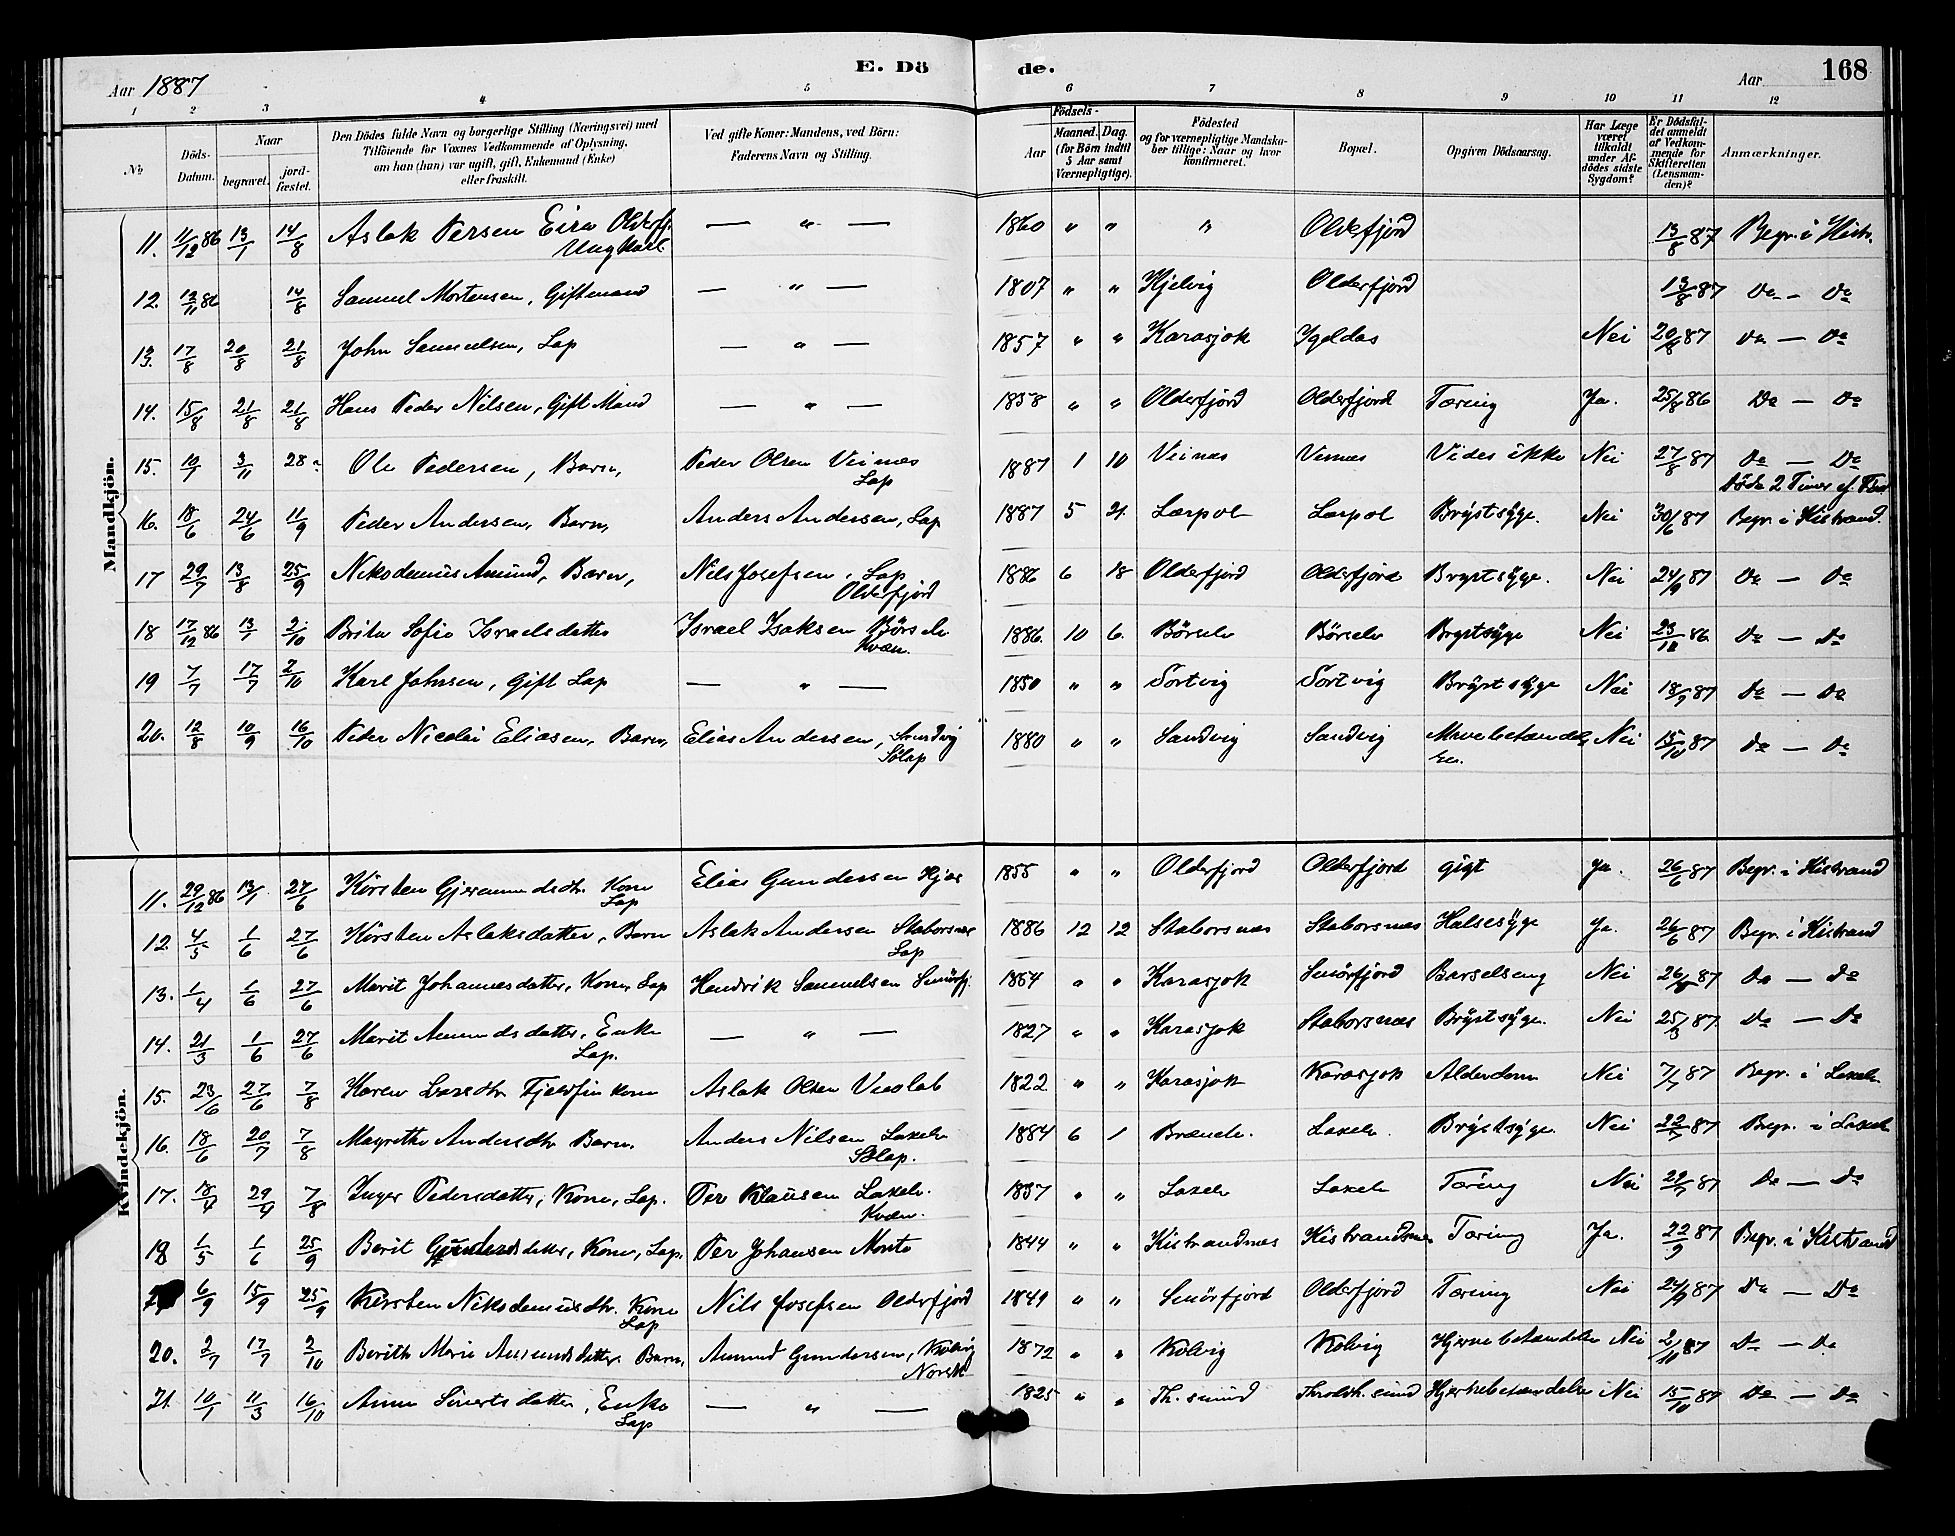 E. Döde.
Aar 1887
Aar
168
1 2 3 4 5 6 7 8 9 10 11 12
No
Döds-Datum.
Naar
begravet.
jordfæstet.
Den Dödes fulde Navn og borgerlige Stilling (Næringsvei) med
Tilföiende for Voxnes Vedkommende af Oplysning,
om han (hun) var ugift, gift, Enkemand (Enke)
eller fraskilt.
Ved gifte Koner: Mandens, ved Börn:
Faderens Navn og Stilling.
Födsels-
Aar
Maaned. Dag.
(for Börn indtil
5 Aar samt
Værnepligtige).
Födested
og for værnepligtige Mandska-
ber tillige: Naar og hvor
konfirmeret.
Bopæl.
Opgiven Dödsaarsag.
Har Læge
været
tilkaldt
under Af-
dödes sidste
Sygdom?
Er Dödsfal-
det anmeldt
af Vedkom-
mende for
Skifteretten
(Lensman-
den)?
Anmærkninger.
Mandkjön.
11. 11/12 86 13/1 14/8 Aslak Persen Eira Olderfj. Ungkarl — " — 1860 " " " Olderfjord 13/8 87 Begr. i Kistr.
12. 13/11 86 14/8 Samuel Mortensen, Giftmand — " — 1807 " " Kjelvig Olderfjord 13/8 87 Do — Do
13. 17/8 20/8 21/8 John Samuelsen, Lap — " — 1857 " " Karasjok Igeldas Nei 20/8 87 Do — Do
14. 15/8 21/8 21/8 Hans Peder Nilsen, Gift Mand — " — 1858 " " Olderfjord Olderfjord Tæring Ja. 25/8 86 Do — Do
15. 10/1 3/11 28 " Ole Pedersen, Barn, Peder Olsen Veines Lap 1887 1 10 Veines Veines Vides ikke Nei 27/8 87 Do — Do
Döde 2 Timer ef. Föd
16. 18/6 24/6 11/9 Peder Andersen, Barn, Anders Andersen, Lap 1887 5 21 Lerpol Lerpol Brÿstsÿge. Nei 30/6 87 Begr. i Kistrand.
17 29/7 13/8 25/9 Nikodemus Amund, Barn, Nils Josefsen, Lap Olderfjord 1886 6 18 Olderfjord Olderfjord Brystsÿge. Nei 24/9 87 Do — Do
18 17/12 86 13/1 2/10 Brita Sofie Israelsdatter Israel Isaksen Börselv Kvæn. 1886. 10 6. Börselv Börselv Brystsÿge Nei 23/12 86 Do — Do
19 7/7 17/7 2/10 Karl Johnsen, Gift Lap — " — 1850 " " Sortvig Sortvig Brÿstsÿge Nei 18/9 87 Do — Do
20. 12/8 10/9 16/10 Peder Nicolai Eliasen, Barn, Elias Andersen, Sandvig Sölap 1880 " " Sandvig Sandvig Mavebetændelsen. Nei 15/10 87 Do — Do
Kvindekjön.
11. 29/12 86 13/1 27/6 Kirsten Gjermundsdtr. Kone Lap Elias Gundersen Kjær 1855 " " Olderfjord Olderfjord gigt Ja. 26/6 87 Begr. i Kistrand
12 4/5 1/6 27/6 Kirsten Aslaksdatter, Barn Aslak Andersen Staborsnes Lap 1886 12 12 Staborsnæs Staborsnæs Halsesÿge Ja. 26/6 87 Begr. i Kistrand
13. 1/4 1/6 27/6 Marit Johannesdatter, Kone, Lap Hendrik Samuelsen Smörfj. 1864 " " Karasjok Smörfjord Barselseng Nei 26/6 87 Do — Do
14. 21/3 1/6 27/6 Marit Amundsdatter, Enke Lap. — " — 1827 " " Karasjok Staborsnæs Brÿstsÿge. Nei 25/3 87. Do — Do
15. 23/6 27/6 7/8 Karen Larsdtr. Fjeldfin kone Aslak Olsen 1822 " " Karasjok Karasjok Alderdom Nei 7/7 87 Begr. i Laxelv.
16. 18/6 20/7 7/8 Magrethe Andersdtr. Barn. Anders Nilsen Laxelv Sölap. 1884 6 1 Brænelv. Laxelv. Brÿstsÿge. Nei 22/7 87 Begr. i Laxelv
17. 18/4 29/4 7/8 Inger Pedersdatter, Kone, Lap. Per Klausen Laxelv. Kvæn. 1837 " " Laxelv Laxelv Tæring Nei 21/7 87 Do — Do
18 1/5 1/6 25/9 Berit datter, Kone, Lap. Per Johansen Monto 1844 " " Kistrandnæs Kistrandnæs Tæring Ja. 22/9 87 Begr. i Kistrand
6/9 15/9 25/9 Kirsten Nikodemusdtr. Kone Lap Nils Josefsen Olderfjord 1849 " " Smörfjord Olderfjord Tæring Nei 24/9 87 Do — Do
20. 2/7 17/7 2/10 Berith Marie Amundsdatter Barn, Amund Gundersen, Kolvig Norsk 1872 " " Kolvig Kolvig Hjernebetændelse Nei 2/10 87 Do — Do
21. 10/1 11/3 16/10 Anne Sivertsdatter, Enke Lap — " — 1825 " " Th. sund Throldh. sund Hjertebetændelse Nei 15/10 87 Do — Do